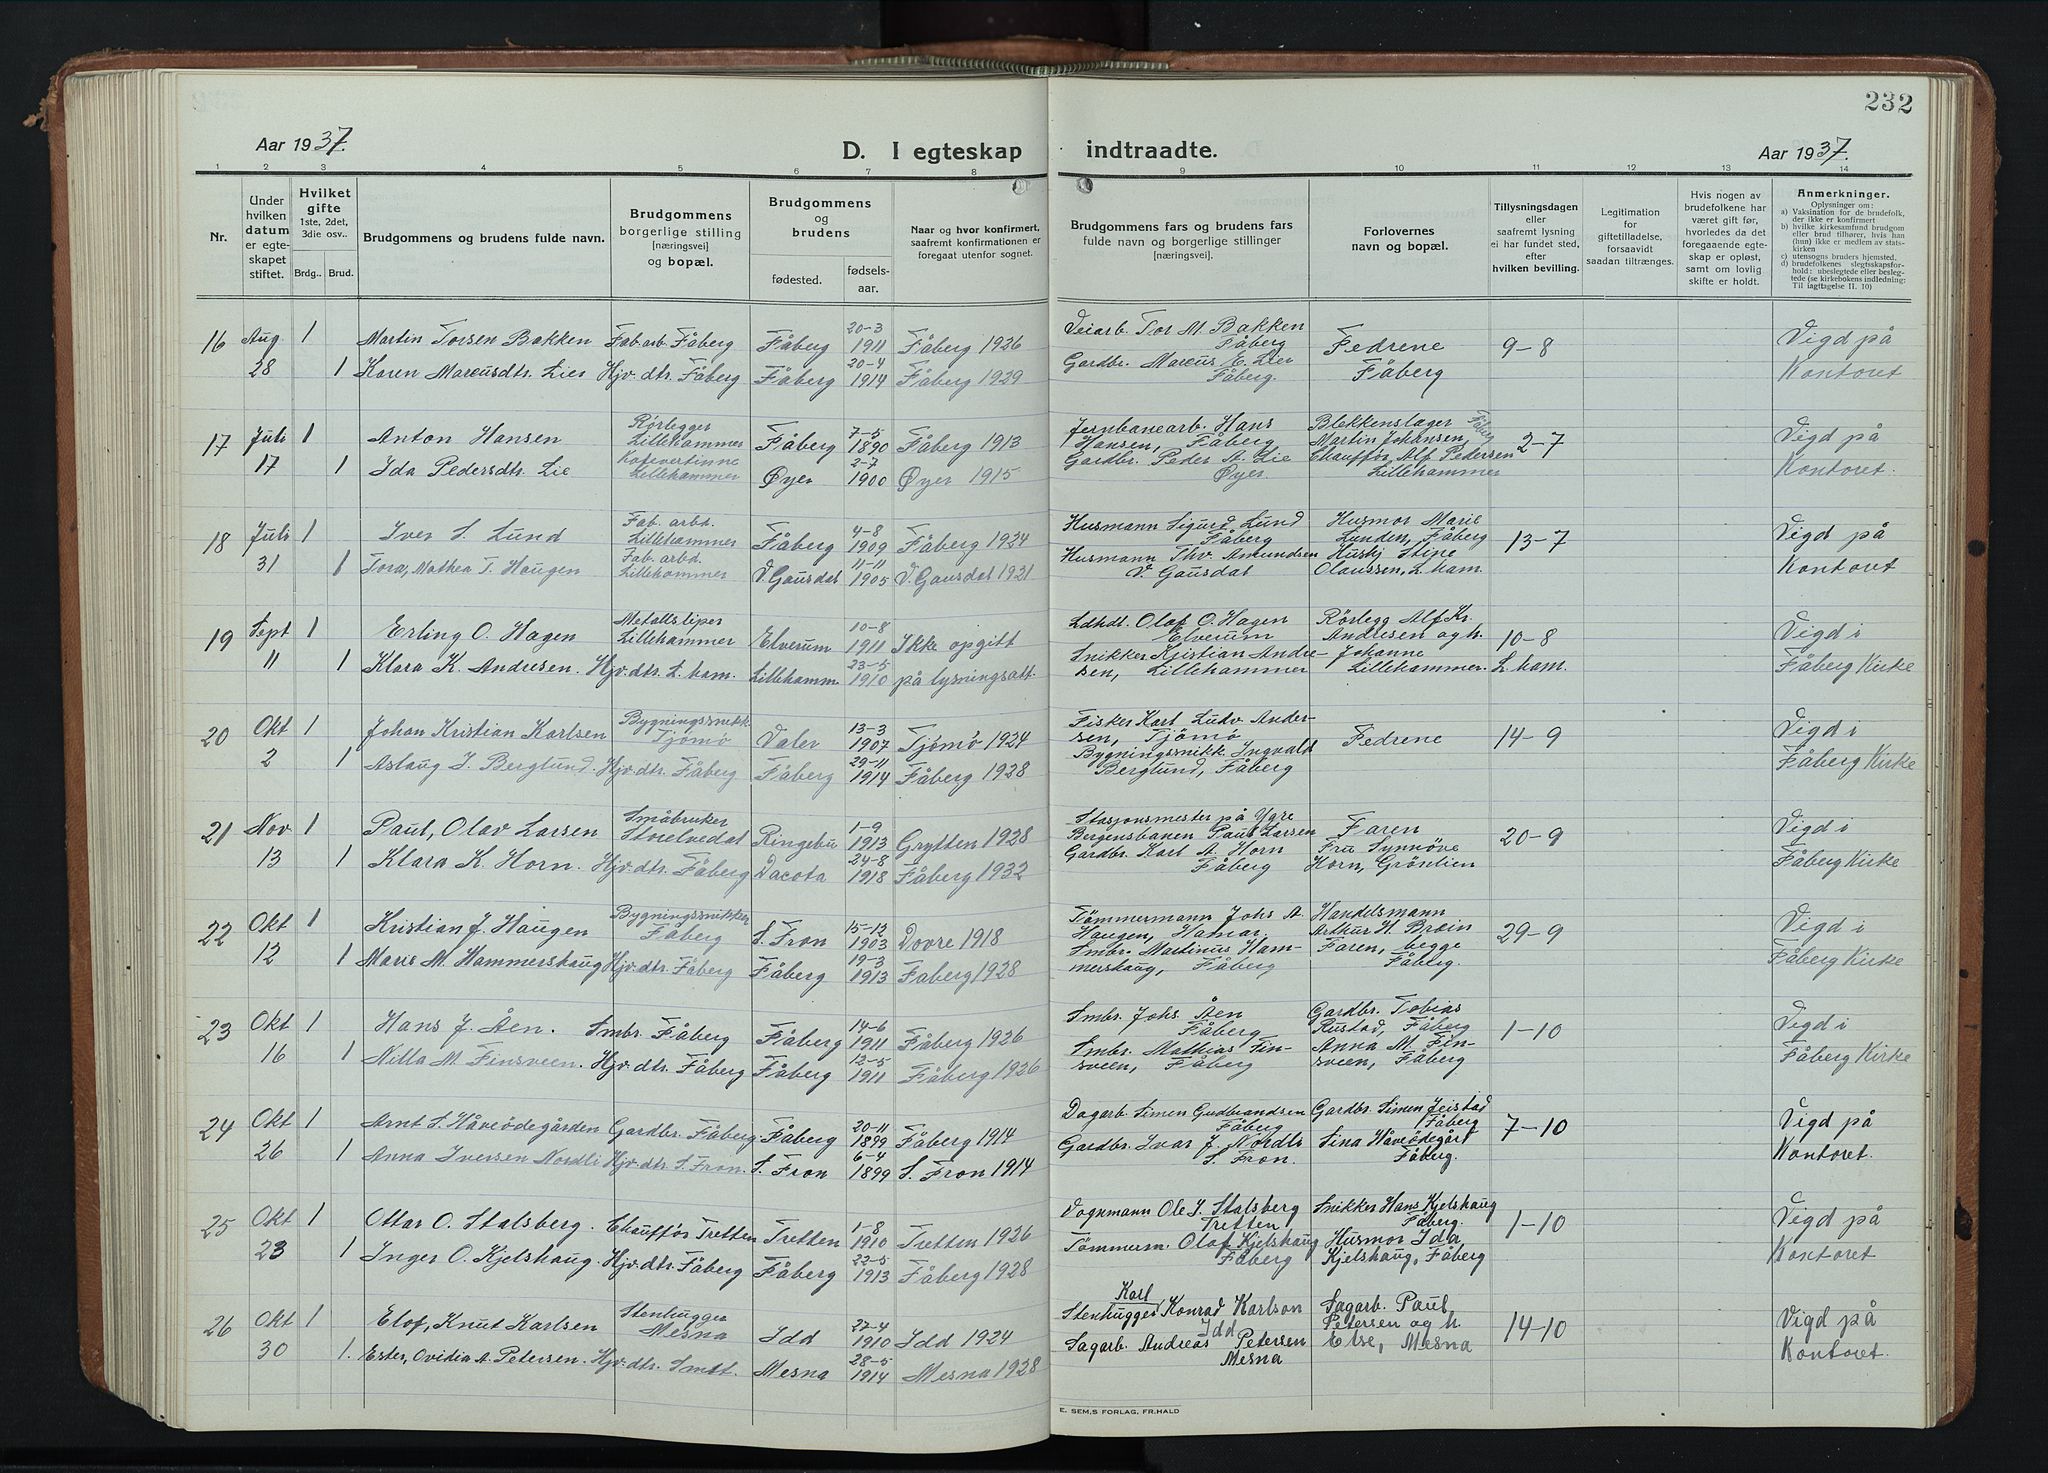 232
Aar 1937.
D. I egteskap indtraadte.
Aar 1937.
1 2 3 4 5 6 7 8 9 10 11 12 13 14
Nr.
Under hvilken datum er egteskapet stiftet.
Hvilket gifte 1ste, 2det, 3die osv..
Brdg.. Brud.
Brudgommens og brudens fulde navn.
Brudgommens borgerlige stilling [næringsvei] og bopæl.
Brudgommens og brudens
fødested. fødselsaar.
Naar og hvor konfirmert, saafremt konfirmationen er foregaat utenfor sognet.
Brudgommens fars og brudens fars fulde navn og borgerlige stillinger [næringsvei].
Forlovernes navn og bopæl.
Tillysningsdagen eller saafremt lysning ei har fundet sted, efter hvilken bevilling.
Legitimation for giftetilladelse, forsaavidt saadan tiltrænges.
Hvis nogen av brudefolkene har været gift før, hvorledes da det foregaaende egteskap er opløst, samt om lovlig skifte er holdt.
Anmerkninger.
Oplysninger om:
a) Vaksination for de brudefolk, der ikke er konfirmert
b) hvilke kirkesamfund brudgom eller brud tilhører, hvis han (hun) ikke er medlem av statskirken
c) utensogns bruders hjemsted.
d) brudefolkenes slegtsskapsforhold: ubeslegtede eller beslegtede (se kirkebokens indledning: Til iagttagelse II. 10)
16 Aug 1 Martin Torsen Bakken Fab.arb. Fåberg Fåberg 20-3 1911 Fåberg 1926 Veiarb. Tor M. Bakken Fåberg Fedrene 9-8 Vigd på
28 1 Karen Marcusdtr. Lier Hjv.dtr. Fåberg Fåberg 20-4 1914 Fåberg 1929 Gardbr. Marcus E. Lier Fåberg. Fåberg Kontoret
17 Juli 1 Anton Hansen Rörlegger Lillehammer Fåberg 7-5 1890 Fåberg 1913 Jernbanearb. Hans Hansen, Fåberg Blekkenslager Martin Johansen, Fåberg 2-7 Vigd på
17 1 Ida Pedersdtr. Lie Lillehammer Øyer 2-7 1900 Øyer 1915 Gardbr. Peder A. Lie Øyer. Chauffør Alf Pedersen Lillehammer Kontoret.
18 Juli 1 Iver S. Lund Fab. arbd. Lillehammer Fåberg 4-8 1909 Fåberg 1924 Husmann Sigurd Lund Fåberg Husmor Marie Lunden, Fåberg 13-7 Vigd på
31 1 Tora, Mathea T. Haugen Fab. arbd. Lillehammer V. Gausdal 11-11 1905 V. Gausdal 1921 Husmann Thv. Amundsen V. Gausdal Hushj Stine Olaussen, L.ham. Kontoret
19 Sept 1 Erling O. Hagen Metallsliper Lillehammer Elverum 10-8 1911 Ikke opgitt Ldhdl. Olaf O. Hagen Elverum Rörlegg Alf Kr. Andresen og h. 10-8 Vigd i
11 1 Klara K. Andresen. Hjv.dtr. L.ham. Lillehamm 23-5 1910 på lysningsatt. Snikker Kristian Andresen, Lillehammer Johanne Lillehammer. L.ham. Fåberg Kirke
20 Okt 1 Johan Kristian Karlsen Bygningssnikk. Tjømø Valer 13-3 1907 Tjømø 1924 Fisker Karl Ludv Andersen, Tjömö Fedrene 14-9 Vigd i
2 1 Aslaug I. Berglund. Hjv.dtr. Fåberg Fåberg 29-11 1914 Fåberg 1928 Bygningssnikk. Ingvald Berglund, Fåberg Fåberg Kirke
21 Nov 1 Paul, Olav Larsen Småbruker Storelvedal Ringebu 1-9 1913 Grytten 1928 Stasjonsmester på Ygre Bergensbanen Paul Larsen Faren 20-9 Vigd i
13 1 Klara K. Horn. Hjv.dtr. Fåberg Dacota 24-8 1918 Fåberg 1932 Gardbr. Karl A. Horn Fåberg Fru Synnöve Horn, Grönlien Fåberg Kirke
22 Okt 1 Kristian J. Haugen Bygningssnikker Fåberg S. Fron 15-12 1903 Dovre 1918 Tömmermann Johs A. Haugen, Hamar. Handelsmann Arthur H. Broin 29-9 Vigd i
12 1 Marie M. Hammershaug Hjv.dtr. Fåberg Fåberg 19-3 1913 Fåberg 1928 Smbr. Martinus Hammershaug, Fåberg Faren, begge Fåberg. Fåberg Kirke
23 Okt 1 Hans J. Åen. Smbr. Fåberg Fåberg 14-6 1911 Fåberg 1926 Smbr. Johs. Åen Fåberg Gardbr. Tobias Rustad, Fåberg 1-10 Vigd i
16 1 Nilla M. Finsveen. Hjv.dtr. Fåberg Fåberg 12-5 1911 Fåberg 1926 Smbr. Mathias Finsveen, Fåberg Anna M. Finsveen, Fåberg Fåberg Kirke
24 Okt 1 Arnt S. Håveödegården Gardbr. Fåberg. Fåberg 20-11 1899 Fåberg 1914 Dagarb. Simen Gudbrandsen Fåberg Gardbr. Simen Jeistad Fåberg 7-10 Vigd på
26 1 Anna Iversen Nordli Hjv.dtr. S. Fron. S. Fron 6-4 1899 S. Fron 1914 Gardbr. Ivar J. Nordli S. Fron. Sina Håveödegård Fåberg. Kontoret.
25 Okt 1 Ottar O. Stalsberg. Chauffør Tretten Tretten 1-8 1910 Tretten 1926 Vognmann Ole J. Stalsberg Tretten Snikker Hans Kjelshaug Fåberg. 1-10 Vigd på
23 1 Inger O. Kjelshaug. Hjv.dtr. Fåberg Fåberg 22-5 1913 Fåberg 1928 Tömmerm. Olaf Kjelshaug Fåberg Husmor Ida Kjelshaug, Fåberg Kontoret
26 Okt 1 Elof, Knut Karlsen Stenhugger Mesna Idd 27-4 1910 Idd 1924 Stenhugger Karl Konrad Karlson Idd Sagarb. Paul Petersen og h. 14-10 Vigd på
30 1. Ester, Ovidia A. Petersen. Hjv.dtr. Smst. Mesna 28-5 1914 Mesna 1928 Sagarb. Andreas Petersen Mesna Else, Mesna Kontoret.
E. SEM,S FORLAG, FR.HALD